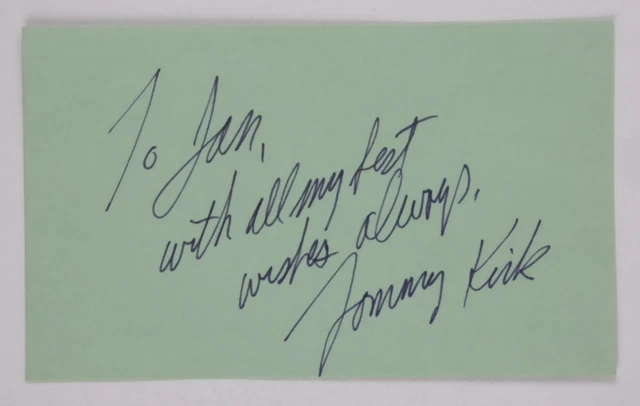 To Jan,
with all my best
wishes always,
Tommy Kirk